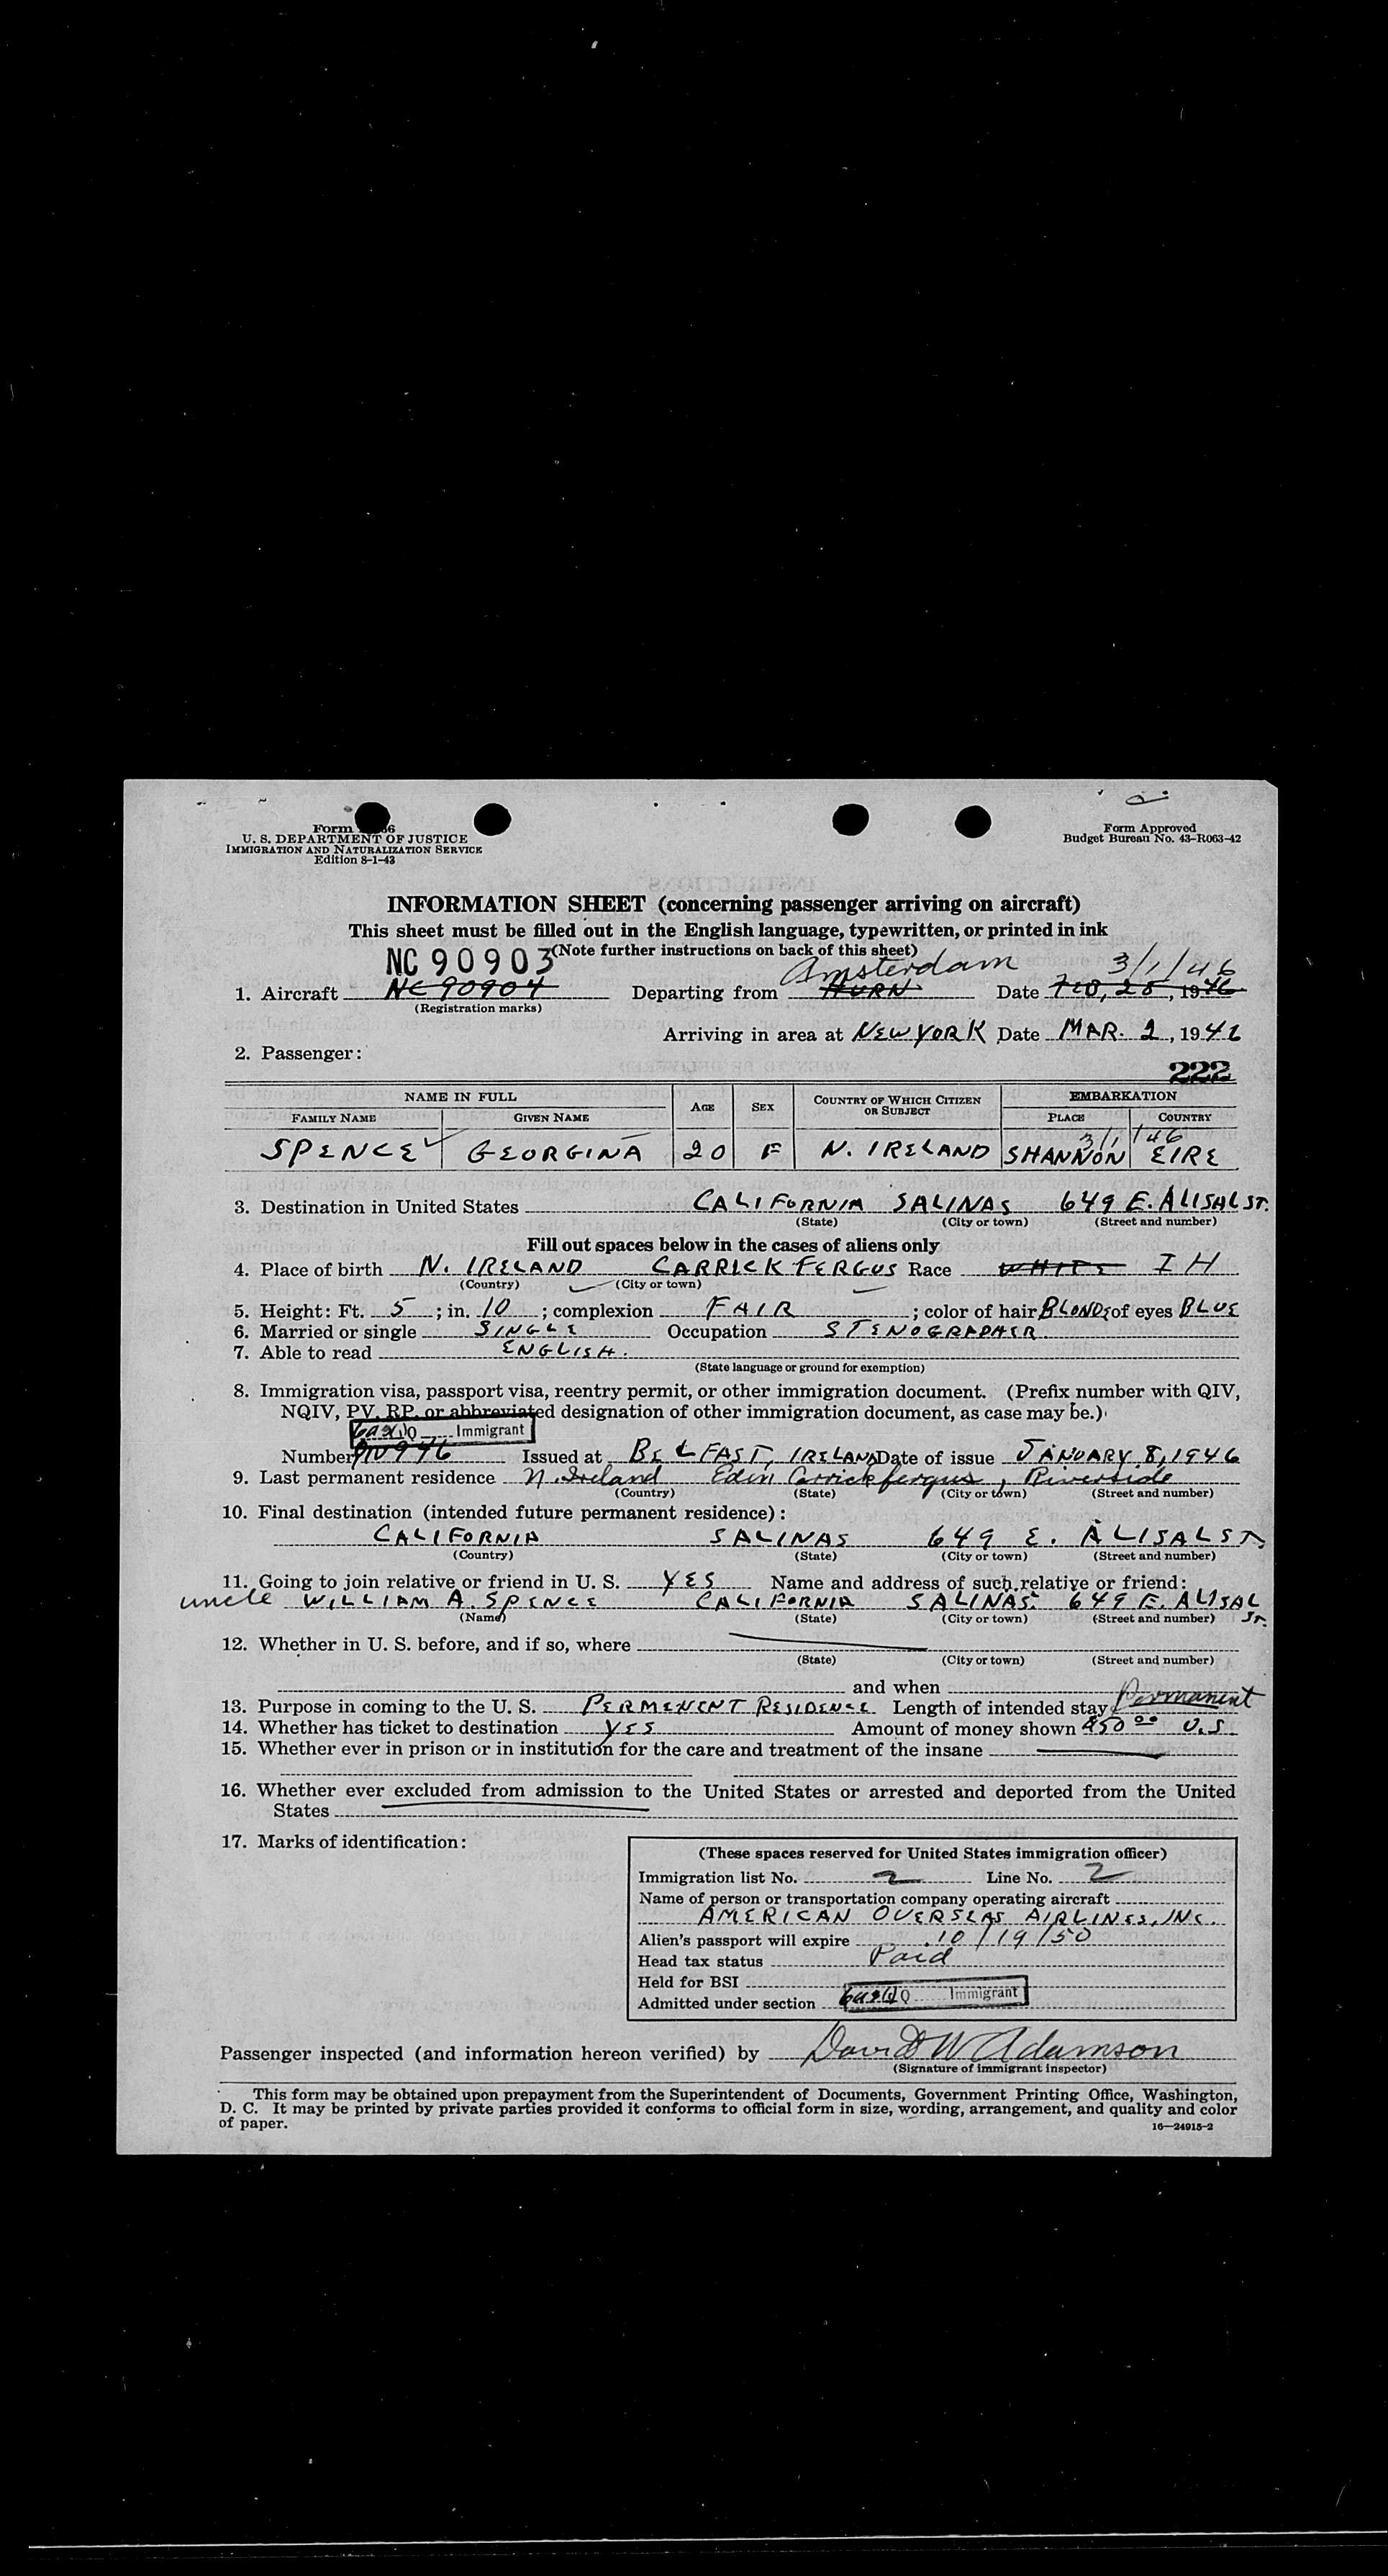 Form
U. S. DEPARTMENT OF JUSTICE
IMMIGRATION AND NATURALIZATION SERVICE
Edition 8-1-43
Form Approved
Budget Bureau No. 43-R063-42
INFORMATION SHEET (concerning passenger arriving on aircraft)
This sheet must be filled out in the English language, typewritten, or printed in ink
(Note further instructions on back of this sheet)
NC 90903 Amsterdam 3/1/46
1. Aircraft NC 90904 Departing from HURN Date Feb, 28, 1946
(Registration marks)
Arriving in area at NEW YORK Date MAR. 2, 1946
2. Passenger:
222
NAME IN FULL AGE SEX COUNTRY OF WHICH CITIZEN OR SUBJECT EMBARKATION
FAMILY NAME GIVEN NAME PLACE COUNTRY
3/1/46
SPENCE GEORGINA 20 F N. IRELAND SHANNON EIRE
3. Destination in United States CALIFORNIA SALINAS 649 E. ALISAL ST.
(State) (City or town) (Street and number)
Fill out spaces below in the cases of aliens only
4. Place of birth N. IRELAND CARRICK FERGUS Race WHITE I H
(Country) (City or town)
5. Height: Ft. 5; in. 10; complexion FAIR; color of hair BLONDE; of eyes BLUE
6. Married or single SINGLE Occupation STENOGRAPHER
7. Able to read ENGLISH.
(State language or ground for exemption)
8. Immigration visa, passport visa, reentry permit, or other immigration document. (Prefix number with QIV,
NQIV, PV, RP, or abbreviated designation of other immigration document, as case may be.)
Immigrant
Number Issued at BELFAST, IRELAND Date of issue JANUARY. 8, 1946
9. Last permanent residence N. Ireland Eden Carrickfergus, Riverside
(Country) (State) (City or town) (Street and number)
10. Final destination (intended future permanent residence):
CALIFORNIA SALINAS 649 E. ALISAL ST.
(Country) (State) (City or town) (Street and number)
11. Going to join relative or friend in U. S. YES Name and address of such relative or friend:
uncle WILLIAM A. SPENCE CALIFORNIA SALINAS 649 E. ALISAL St.
(Name) (State) (City or town) (Street and number)
12. Whether in U. S. before, and if so, where
(State) (City or town) (Street and number)
and when
13. Purpose in coming to the U. S. PERMENENT RESIDENCE Length of intended stay Permanent
14. Whether has ticket to destination YES Amount of money shown $50 00 U.S.
15. Whether ever in prison or in institution for the care and treatment of the insane
16. Whether ever excluded from admission to the United States or arrested and deported from the United
States
17. Marks of identification:
(These spaces reserved for United States immigration officer)
Immigration list No. 2 Line No. 2
Name of person or transportation company operating aircraft
AMERICAN OVERSEAS AIRLINES, INC.
Alien's passport will expire 10/19/50
Head tax status Paid
Held for BSI
Admitted under section Immigrant
Passenger inspected (and information hereon verified) by David W Adamson
(Signature of immigrant inspector)
This form may be obtained upon prepayment from the Superintendent of Documents, Government Printing Office, Washington,
D. C. It may be printed by private parties provided it conforms to official form in size, wording, arrangement, and quality and color
of paper.
16—24915-2